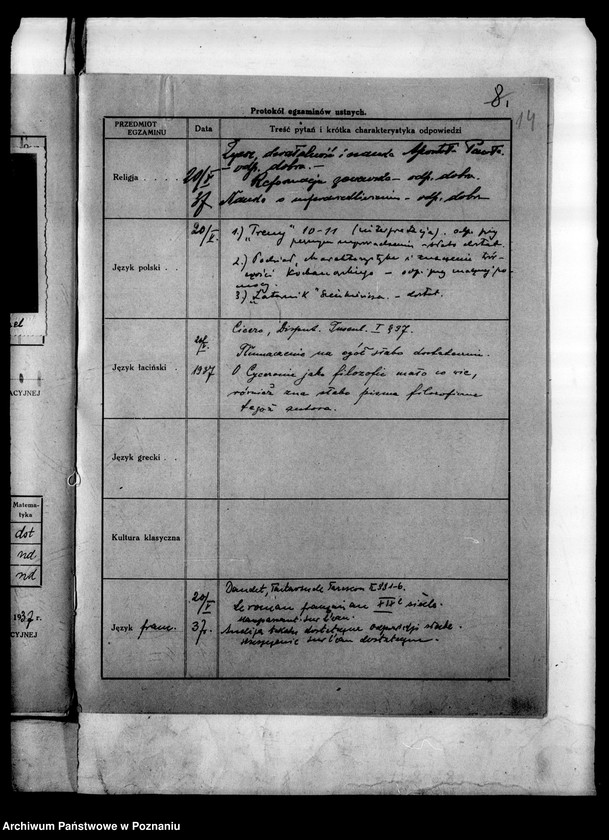 8.
14
Protokół egzaminów ustnych.
PRZEDMIOT EGZAMINU
Data
Treść pytań i krótka charakterystyka odpowiedzi
Religja . . . .
20/V 37
Życie, działalność i nauka Apostoła Pawła
– odp. dobra. –
Reformacja – odp. dobra.
Nauka o usprawiedliwieniu – odp. dobra
Język polski . .
20/V.
1.) "Treny" 10–11 (interpretacja). odp. przy
– słabo dostat.
2.) Podział, charakterystyka i znaczenie twór-
czości Kochanowskiego – odp. przy po-
mocy.
3) "Latarnik" Sienkiewicza. – dostat.
Język łaciński .
20/V 1937
Cicero, Disput. Tuscul. I § 97.
Tłumaczenie na ogół słabo dostateczne.
O Cyceronie jako filozofie mało co wie,
również zna słabo pisma filozoficzne
tegoż autora.
Język grecki . .
Kultura klasyczna
Język franc.
20/V 37 r.
Daudet, Tartarin de Tarascon
Le roman français au XIX e siècle.
dostateczne
dostateczne.
el
ACYJNEJ
Matema-
tyka
dst
nd
nd
1937 r.
CYJNEJ
Archiwum Państwowe w Poznaniu